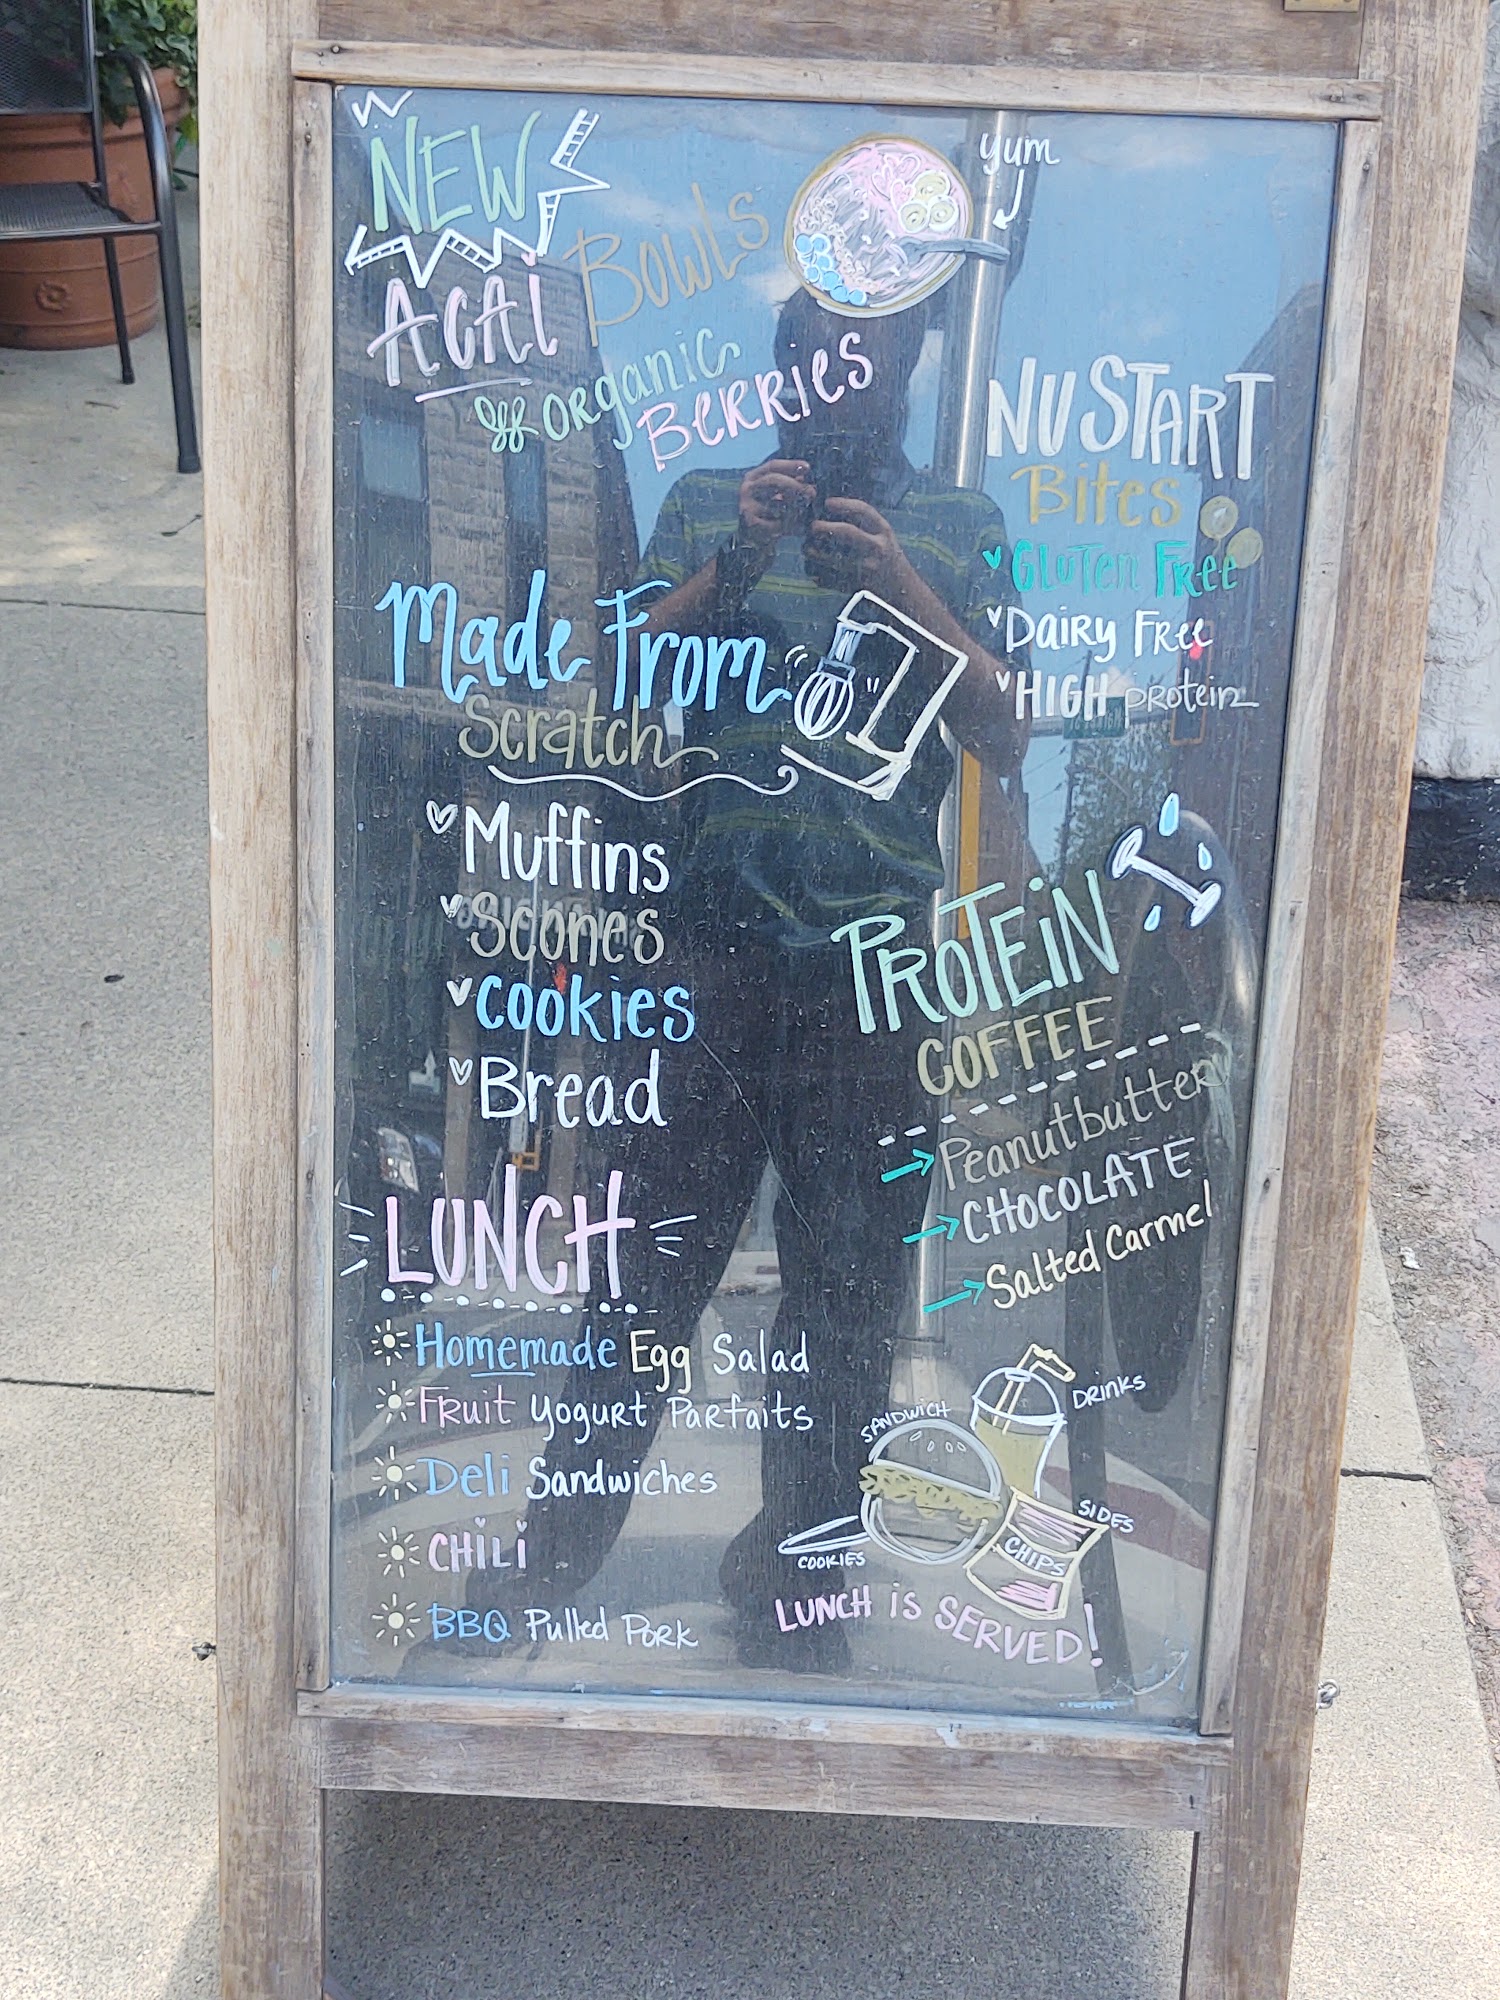 NEW
ACAI BOWLS
ORGANIC
BERRIES
yum
NUSTART
Bites
Gluten Free
Dairy Free
HIGH protein
Made From
Scratch
Muffins
Scones
Cookies
Bread
PROTEIN
COFFEE
Peanutbutter
CHOCOLATE
Salted Carmel
LUNCH
Homemade Egg Salad
Fruit Yogurt Parfaits
Deli Sandwiches
CHILI
BBQ Pulled Pork
SANDWICH
DRINKS
SIDES
CHIPS
COOKIES
LUNCH IS SERVED!